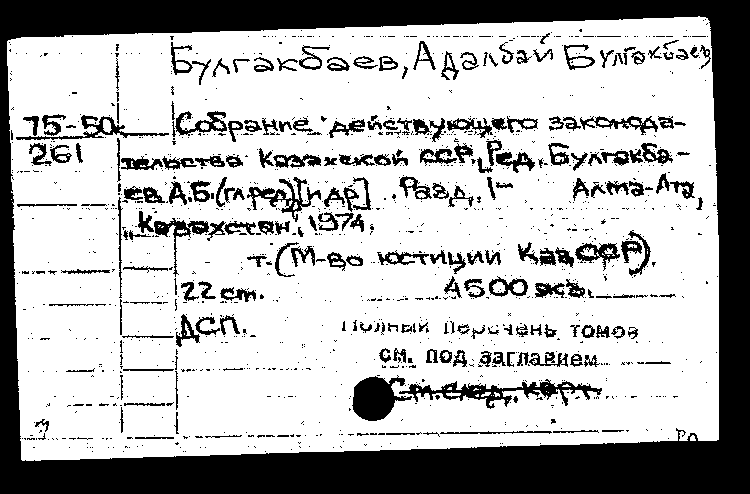 Булгакбаев, Адалбай Булгакбаев
75-50к Собрание действующего законода-
261 тельства Казахской ССР. [Ред. Булгакба-
ев А.Б. (гл.ред.) [и др] . Разд. 1- Алма-Ата,
"Казахстан", 1974.
т. (М-во юстиции Каз.ССР).
22 см. 4500 экз.
ДСП. Полный перечень томов
см. под заглавием
См. след. карт.